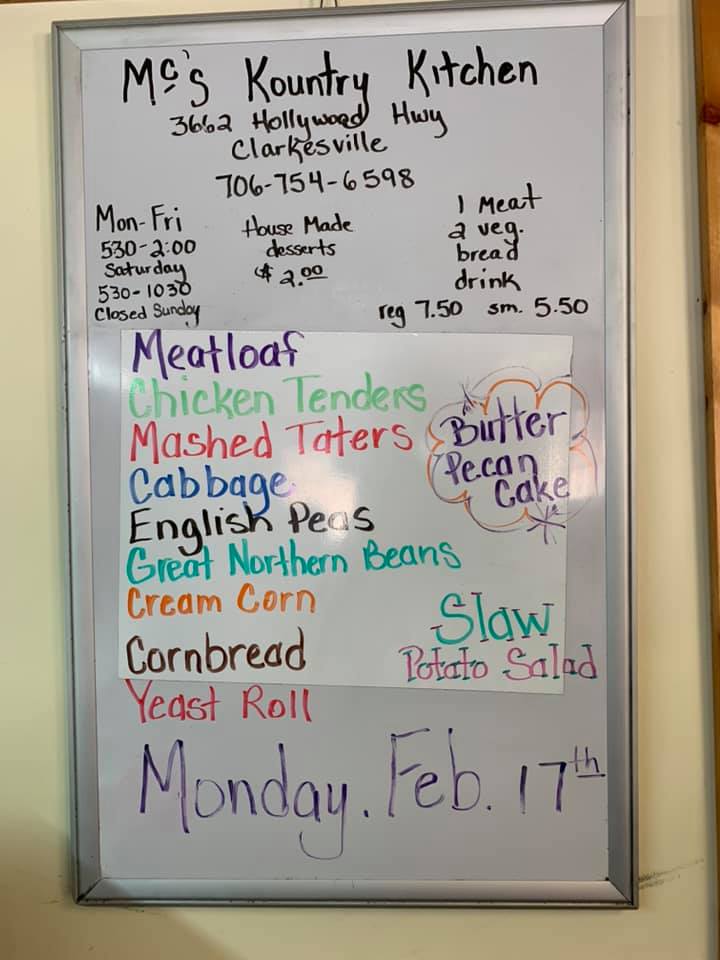 Mc's Kountry Kitchen
3662 Hollywood Hwy
Clarkesville
706-754-6598
Mon-Fri
530-2:00
Saturday
530-1030
Closed Sunday
House Made
desserts
$2.00
1 Meat
2 veg.
bread
drink
reg 7.50 sm. 5.50
Meatloaf
Chicken Tenders
Mashed Taters
Cabbage
English Peas
Great Northern Beans
Cream Corn
Cornbread
Yeast Roll
Butter
Pecan
Cake
Slaw
Potato Salad
Monday. Feb. 17th